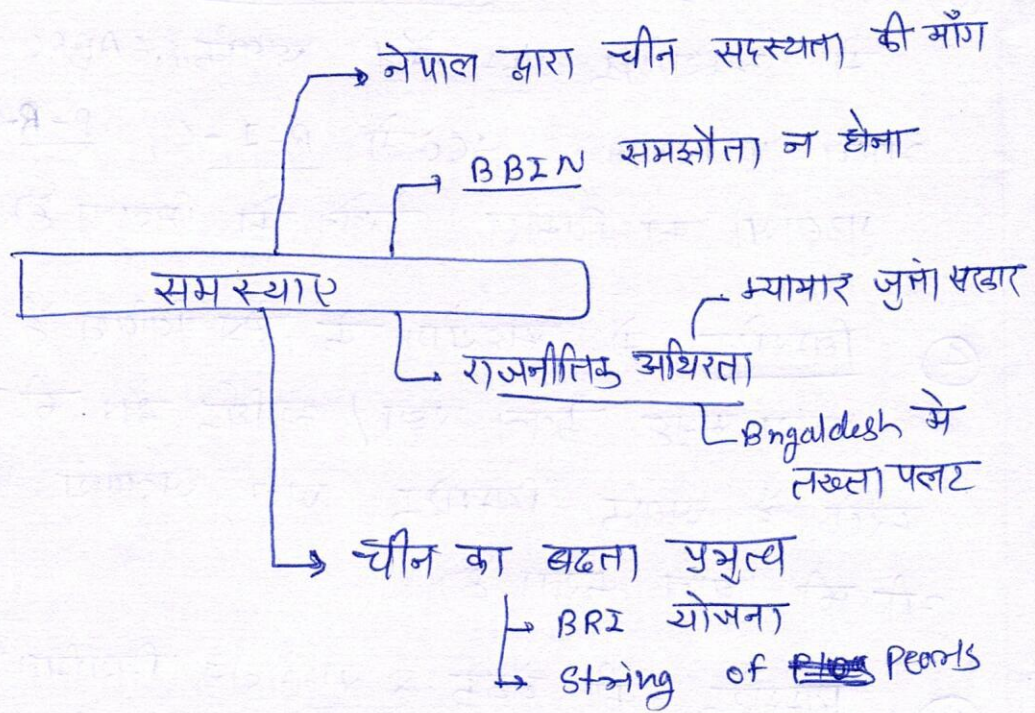 नेपाल द्वारा चीन सदस्यता की माँग
BBIN समझौता न होना
समस्याए
म्यामार जुन्ta सरकार
राजनीतिक अथिरता
Bngaldesh मे
तख्ता पलट
चीन का बढता प्रभुत्व
BRI योजना
String of Pearls